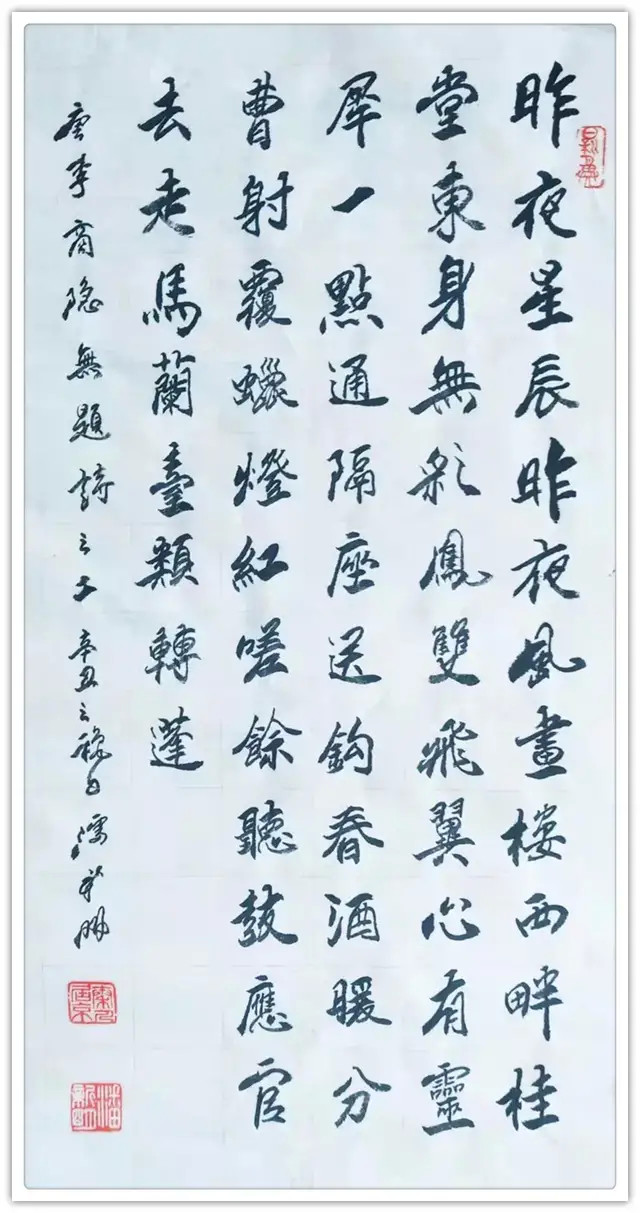 昨夜星辰昨夜風畫樓西畔桂
堂東身無彩鳳雙飛翼心有靈
犀一點通隔座送鈎春酒暖分
曹射覆蠟燈紅嗟餘聽鼓應官
去走馬蘭臺類轉蓬
唐李商隐無題詩之二辛丑之秋月